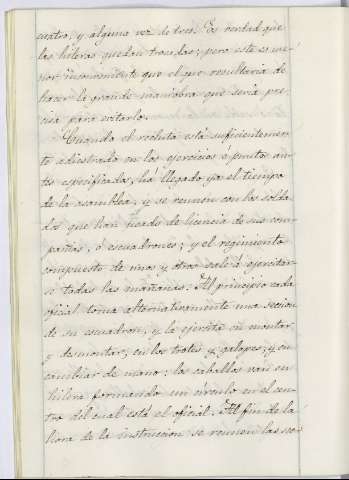 cuatro, y alguna vez de tres. Es verdad que
las hileras quedan trocadas; pero este es me-
nor inconveniente que el que resultaria de
hacer la grande maniobra que seria pre-
cisa para evitarlo.
Cuando el recluta está suficientemen-
te adiestrado en los ejercicios ó puntos an-
tes especificados, há llegado ya el tiempo
de la asamblea, y se reunen con los solda-
dos que han usado de licencia de sus com-
pañias, ó escuadrones; y el regimiento
compuesto de unos y otros sale á ejercitar-
se todas las mañanas. Al principio cada
oficial toma alternativamente una seccion
de su escuadron, y la ejercita en montar,
y desmontar, en los trotes y galopes, y en
cambiar de mano: los caballos van en
hilera formando un círculo en el cen-
tro del cual está el oficial. Al fin de la
hora de la instruccion se reunen las sec-